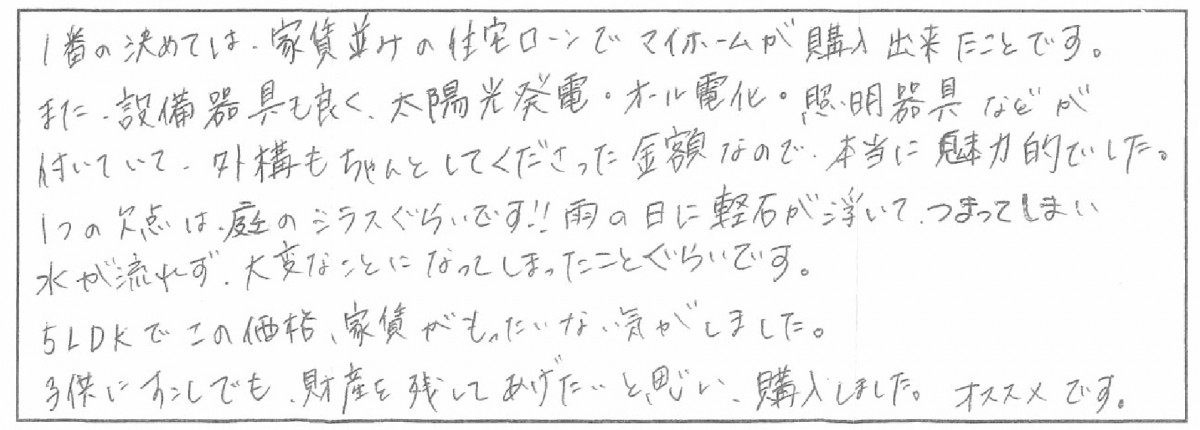 1番の決めては、家賃並みの住宅ローンでマイホームが購入出来たことです。
また、設備器具も良く、太陽光発電・オール電化・照明器具などが
付いていて、外構もちゃんとしてくださった金額なので、本当に魅力的でした。
1つの欠点は、庭のシラスぐらいです!!雨の日に軽石が浮いて、つまってしまい
水が流れず、大変なことになってしまったことぐらいです。
5LDKでこの価格、家賃がもったいない気がしました。
子供にすこしでも、財産を残してあげたいと思い、購入しました。オススメです。